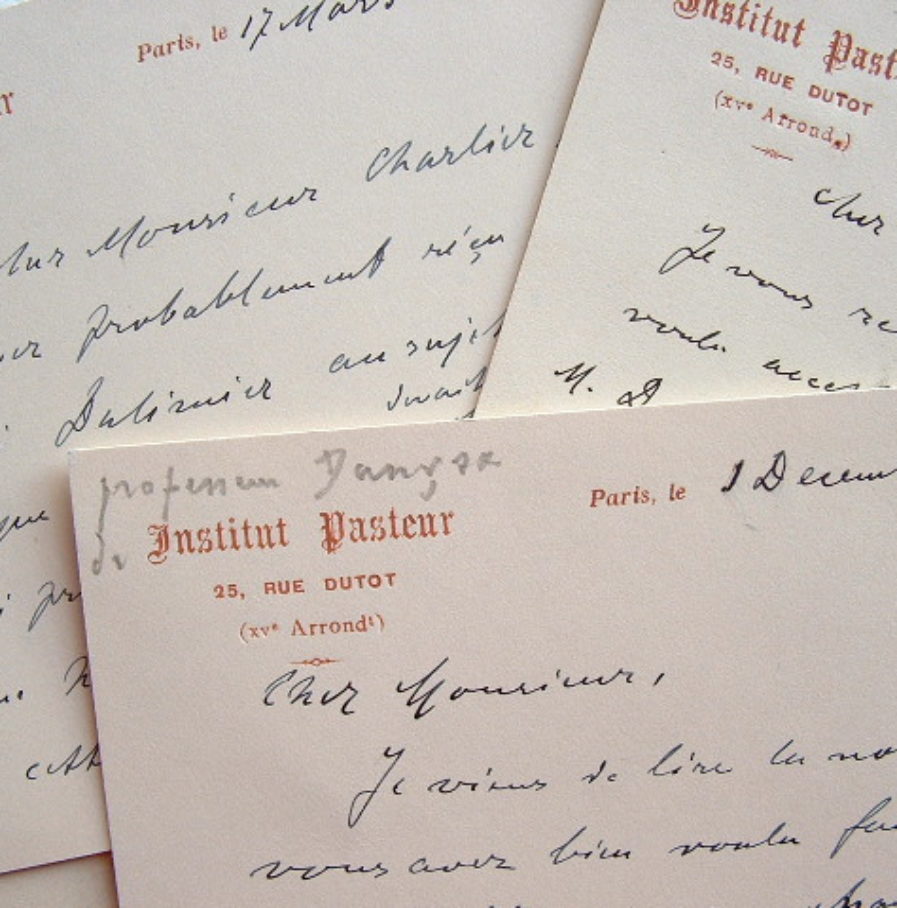 Paris, le 17 Mars
r
Cher Monsieur Charlier
probablement réçu
Dalimier au sujet
que
cett
Institut Past
25, RUE DUTOT
(XVe Arrondt)
Cher
Je vous re
voulu acce
M. D
professeur Danysz
de Institut Pasteur
25, RUE DUTOT
(XVe Arrondt)
Paris, le 1 Decem
Cher Monsieur,
Je viens de lire la no
vous avez bien voulu fai